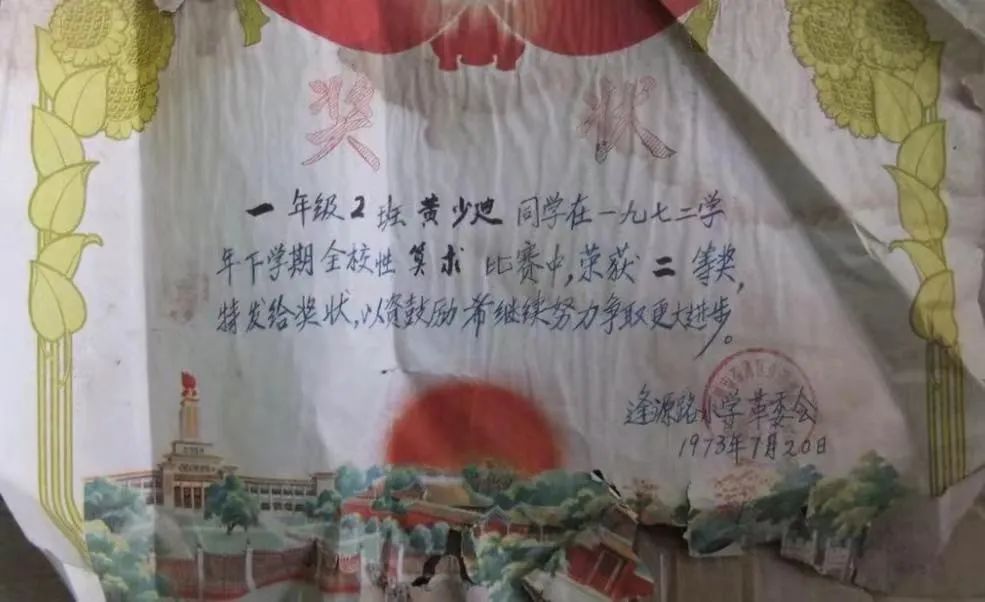 奖状
一年级2班黄少吔同学在一九七二学
年下学期全校性算求比赛中,荣获二等奖,
特发给奖状,以资鼓励希继续努力争取更大进步。
逢源路小学革委会
1973年7月20日